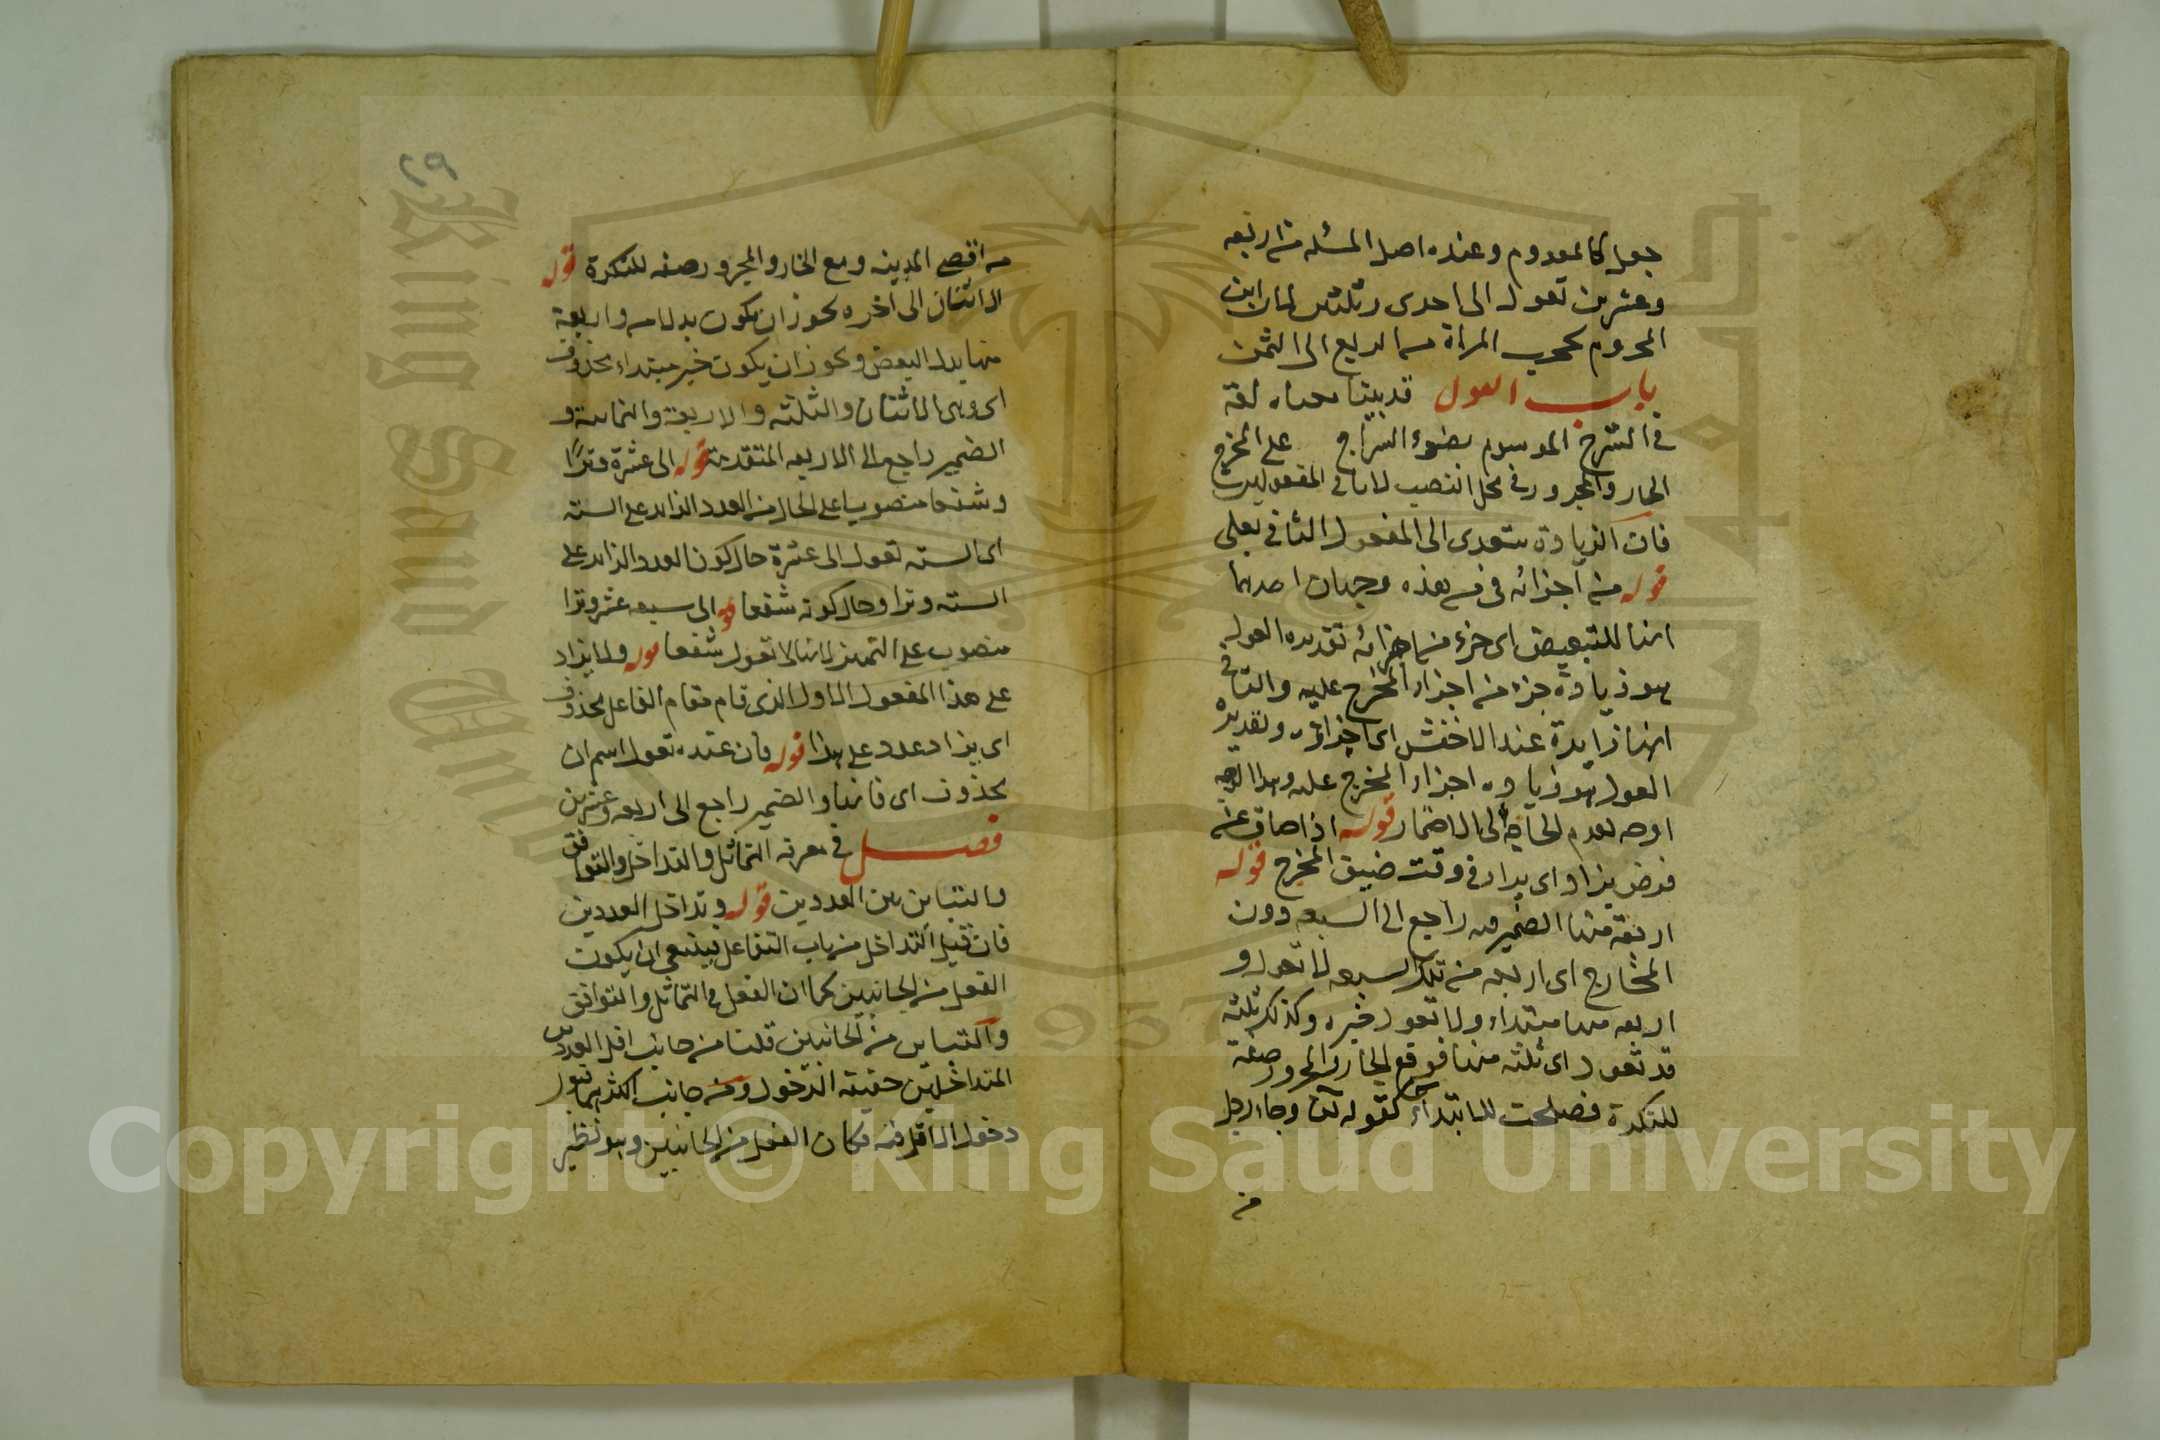 جعل كالمعدوم وعنده اصل المسئلة من اربعة
وعشرين تعول الى احدى وثلثين لان ابن
المحروم يحجب المراة من الربع الى الثمن
باب العول قد بينا معناه لغة
في الشرح الموسوم بضوء السراج على المخرج
الجار والمجرور في محل النصب لانها في المفعولين
فان الزيادة يتعدى الى المفعول الثاني بعلى
قوله من اجزائه في من هذه وجهان احدهما
انها للتبعيض اى جزء من اجزائه تقديره العول
هو زيادة جزء من اجزاء المخرج عليه والثاني
انها زايدة عند الاخفش اى اجزائه وتقديره
العول هو زيادة اجزاء المخرج عليه وهذا الوجه
اوجه لعدم الحاجة الى الاضمار قوله اذا ضاق عن
فرض يزاد اى يزاد في وقت ضيق المخرج قوله
اربعة منها الضمير فيه راجع الى السبعة دون
المخارج اى اربعة من تلك السبعة لا تعول و
اربعة منها مبتداء ولا تعول خبره وكذلك ثلثة
قد تعول اى ثلثة منها فوقع الجار والمجرور صفة
للنكرة فصلحت للابتداء كقوله تعالى وجاء رجل
من
٢٩
من اقصى المدينة ومع الجار والمجرور صفة للنكرة قوله
الاثنان الى اخره يجوز ان يكون بدلا من واربعة
منها بدل البعض ويجوز ان يكون خبر مبتداء محذوف
اى وهى الاثنان والثلثة والاربعة والثمانية و
الضمير راجع الى الاربعة المتقدمة قوله الى عشرة وترا
وشفعا منصوبا على الحال من العدد الزايد على الستة
اى الستة تعول الى عشرة حال كون العدد الزايد على
الستة وترا وحال كونه شفعا قوله الى سبعة عشر وترا
منصوب على التمييز لانها لا تعول شفعا قوله ولا يزاد
على هذا المفعول الاول الذى قام مقام الفاعل محذوف
اى يزاد عدد على هذا قوله فان عنده تعول اسم ان
محذوف اى فانها والضمير راجع الى اربعة وعشرين
فصل في معرفة التماثل والتداخل والتوافق
والتباين بين العددين قوله وتداخل العددين
فان قيل التداخل من باب التفاعل فينبغي ان يكون
الفعل من الجانبين كما ان الفعل في التماثل والتوافق
والتباين من الجانبين قلنا من جانب اقل العددين
المتداخلين حقيقة الدخول ومن جانب اكثرهما قبول
دخول الاقل فيه فكان الفعل من الجانبين وهو نظير
Copyright © King Saud University
King Saud University
1957